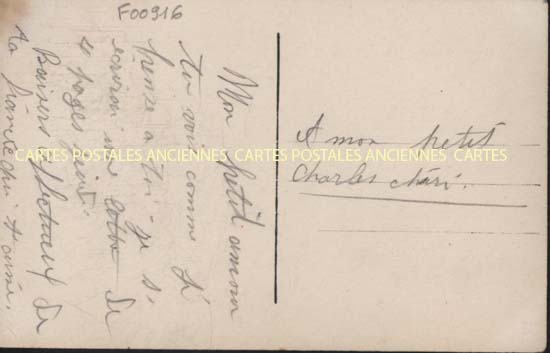 F00916
Mon petit amour
tu vois comme je
pense a toi je t'
ecrirai une lettre de
pages
Baisers affectueux de
ta fiancée qui t'aime.
A mon petit
Charles chéri.
CARTES POSTALES ANCIENNES CARTES POSTALES ANCIENNES CARTES POSTALES ANCIENNES